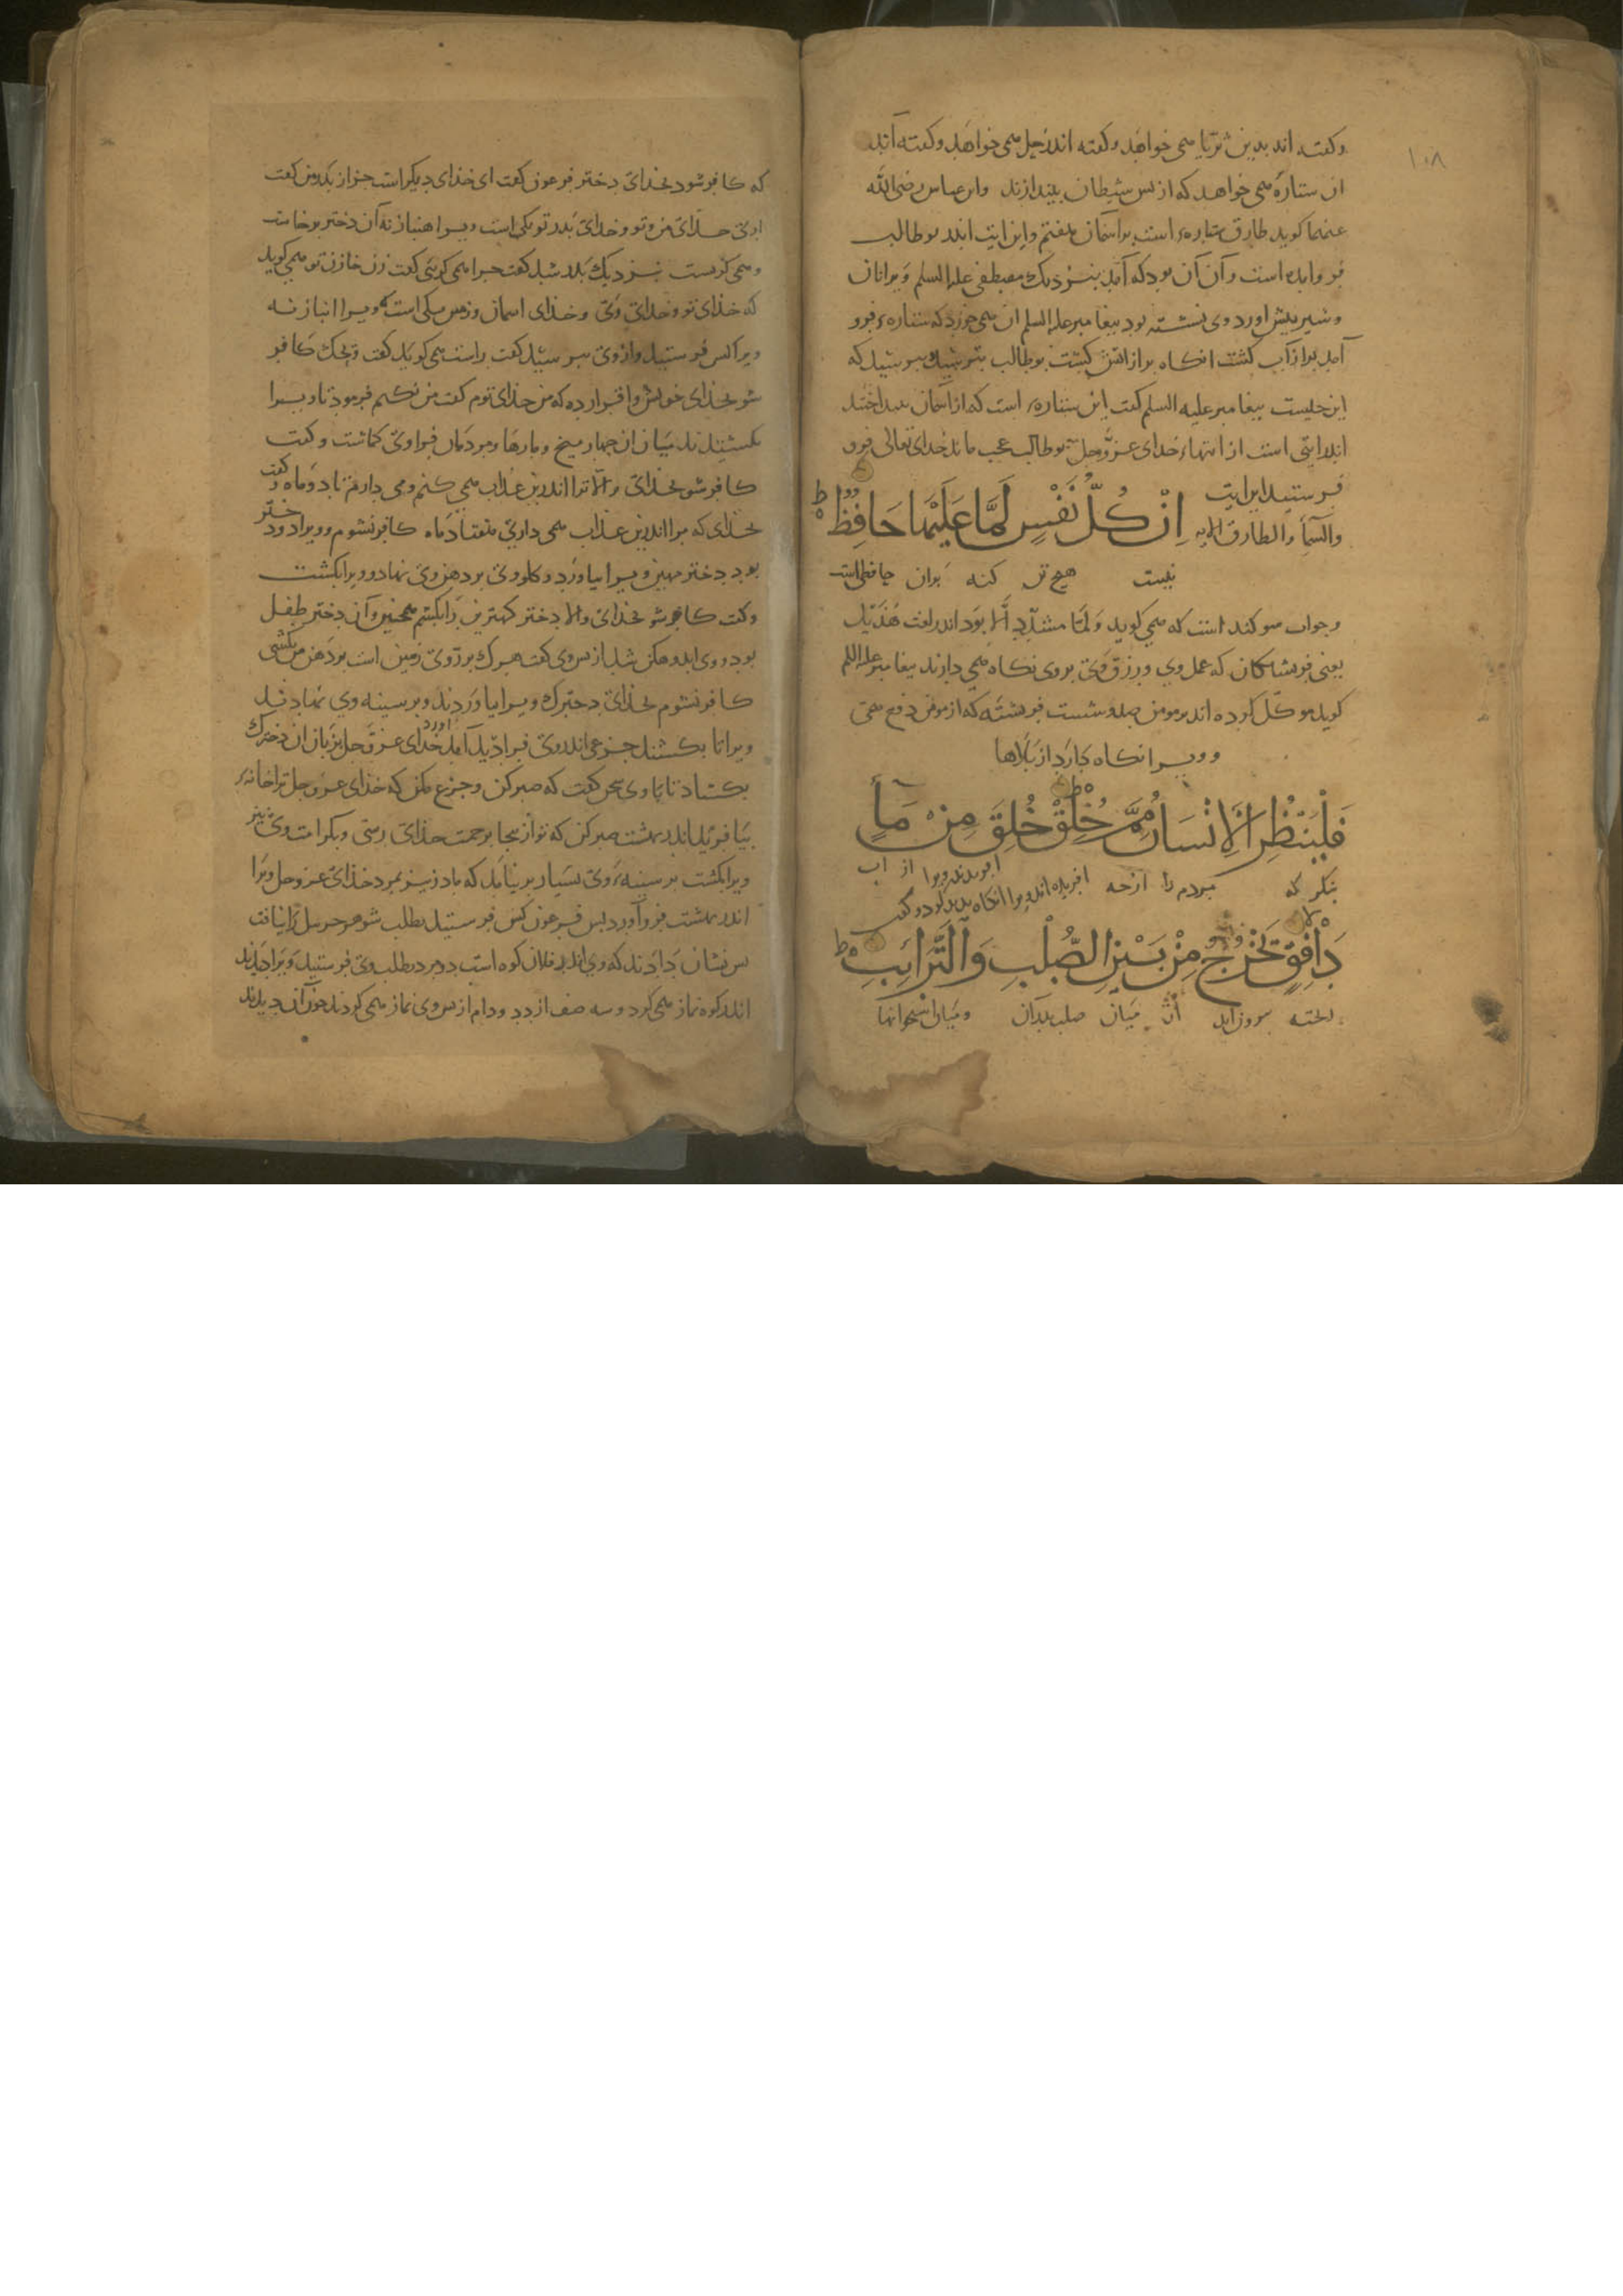 ۱۰۸
و کفته اند بدین ثریا همی خواهد و کفته اند زحل همی خواهد و کفته آند
ان ستاره همی خواهد که از بس شیطان بیندازند وابن عباس رضی الله
عنهما کوید طارق ستاره است بر اسمان هفتم واین ایت اندر بو طالب
فرو امده است و آن آن بود که آمد بنزدیک مصطفی علیه السلم و یرا نان
و شیر بیش اورد وی نشسته بود بیغامبر علیه السلم ان همی خورد که ستاره فرو
آمد بر از آب کشت انکاه بر از اتش کشت بو طالب بترسید ببرسید که
این جیست بیغامبر علیه السلم کفت این ستاره است که از اسمان بینداختند
اندر ایتی است از ایتهاء خدای عز وجل بو طالب عجب ماند خدای تعالی فرو
فرستید این ایت
والسماء والطارق الایه اِنْ كُلُّ نَفْسٍ لَمَّا عَلَيْهَا حَافِظٌ ط
نیست هیچ تن کنه بران حافظ است
و جواب سوکند است که همی کوید وَلَمّا مشدّد الا بَود اندر لغت هُذَیل
یعنی فریشتکان که عمل وی و رزق وی بروی نکاه همی دارند بیغامبر علیه السلم
کوید موکّل کرده اند بر مومن صد وشست فریشته که از مومن دفع همی
و ویرا نکاه دارد از بلاها
فَلْيَنْظُرِ الْاِنْسَانُ مِمَّ خُلِقَ ط خُلِقَ مِنْ مَاءٍ
بنکر که مردم را از جه افریده اند ویرا از اب
دَافِقٍ يَخْرُجُ مِنْ بَيْنِ الصُّلْبِ وَالتَّرَائِبِ ط
ریخته بیرون اید از میان صلب بدران و میان استخوانها
که کافر شود بخدای دختر فرعون کفت ای خدای دیکر است جز از بدر من کفت
اری خدای من و تو و خدای بدر تو یکی است ویرا هنباز نه آن دختر برخاست
و همی کریست بنزدیک بدر شد کفت جرا همی کریی کفت زن خازن تو همی کوید
که خدای تو و خدای وی و خدای اسمان و زمین یکی است که ویرا انباز نه
ویرا کس فرستید و از وی ببرسید کفت راست همی کوید کفت ویحک کافر
شو بخدای خویش و اقرار ده که من خدای توم کفت من نکنم فرمود تا ویرا
بکشیدند میان ان جهار میخ و مارها و مردمان فرا وی کماشت و کفت
کافر شو بخدای والا ترا اندرین عذاب همی کنم و می دارم تا دو ماه کفت
بخدای که مرا اندرین عذاب همی داری هفتاد ماه کافر نشوم و ویرا دو دختر
بود دختر مهین ویرا بیاورد و کلو وی بر دهن وی نهاد و ویرا بکشت
و کفت کافر شو بخدای والا دختر کهترین را بکشم همجنین و آن دختر طفل
بود کفت هر که بر روی زمین است بر دهن من بکشی
کافر نشوم بخدای دخترک ویرا بیاوردند و بر سینه وی نهادند
ویرا تا بکشند جزعی اندر وی فرادید آمد خدای عزوجل زبان ان دخترک
بکشاد تا با وی سخن کفت که صبر کن و جزع مکن که خدای عزوجل ترا خانه
بیافرید اندر بهشت صبر کن که تو از اینجا برحمت خدای رسی و بکرامت وی نیز
ویرا بکشت بر سینه وی بسیار بر نیامد که مادر نیز بمرد خدای عزوجل ویرا
اندر بهشت فرو آورد بس فرعون کس فرستید بطلب شوهر ویرا نیافت
بس نشان دادند که وی اندر فلان کوه است دو مرد بطلب وی فرستید ویرا دیدند
اندر کوه نماز همی کرد و سه صف از دد و دام از بس وی نماز همی کردند جون آن دیدند